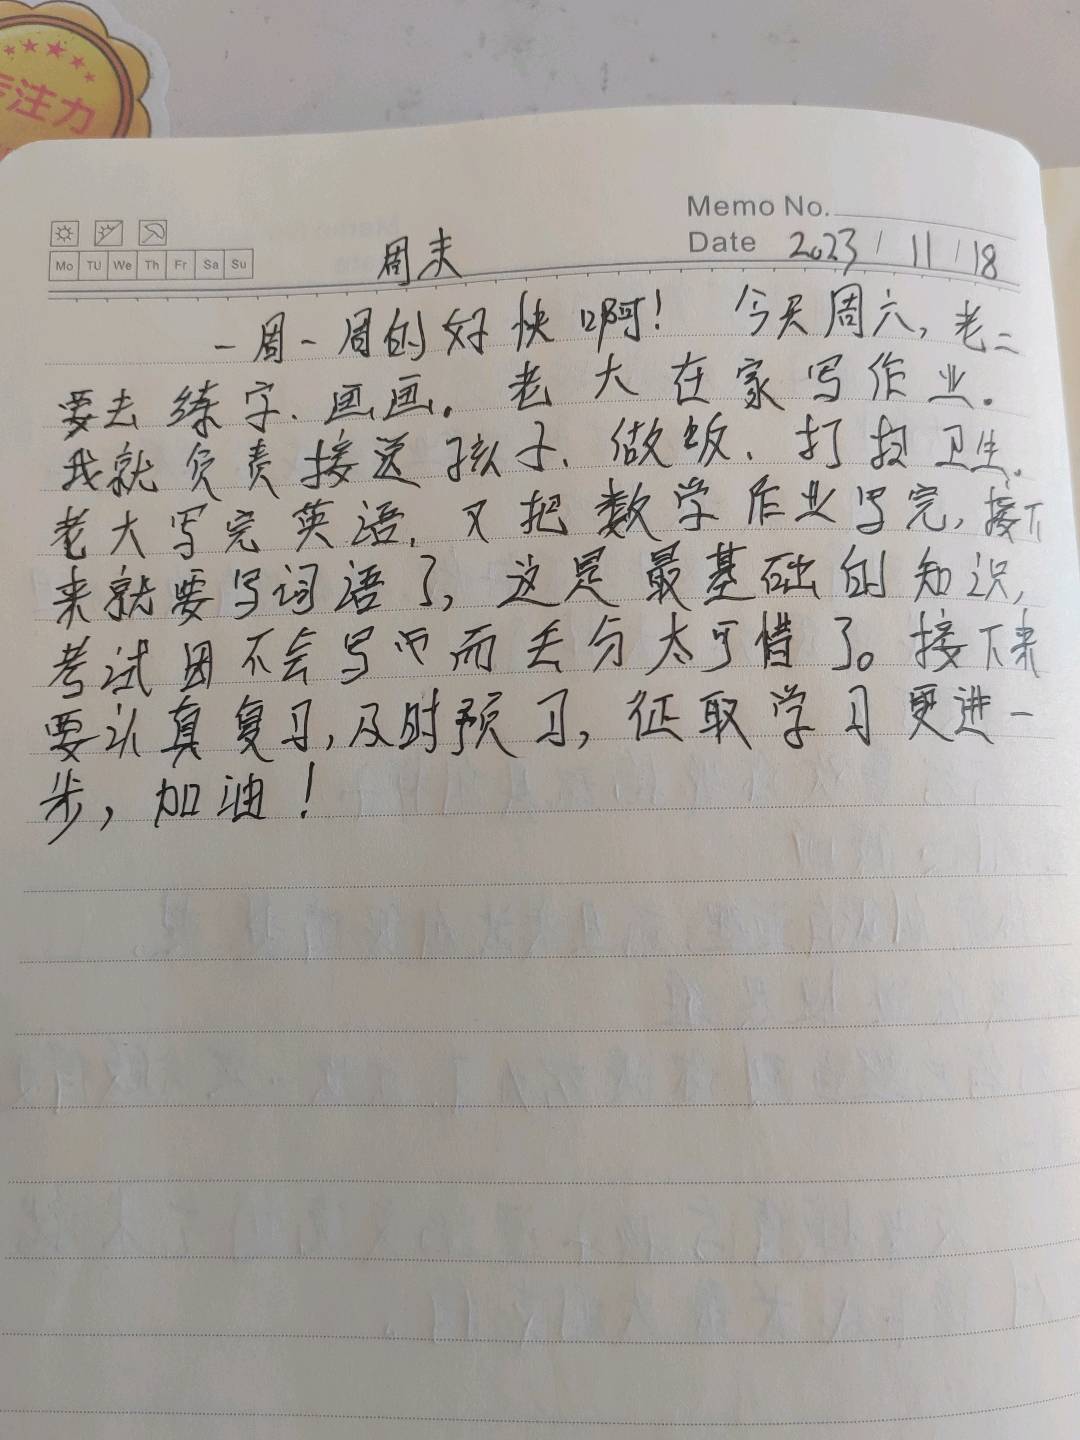 专注力
Memo No.
Date 2023/11/18
Mo TU We Th Fr Sa Su
周末
一周一周的好快啊！ 今天周六，老二
要去练字、画画。老大在家写作业。
我就负责接送孩子、做饭、打扫卫生。
老大写完英语，又把数学作业写完，接下
来就要写词语了，这是最基础的知识，
考试因不会写而丢分太可惜了。接下来
要认真复习，及时预习，征取学习更进一
步，加油！